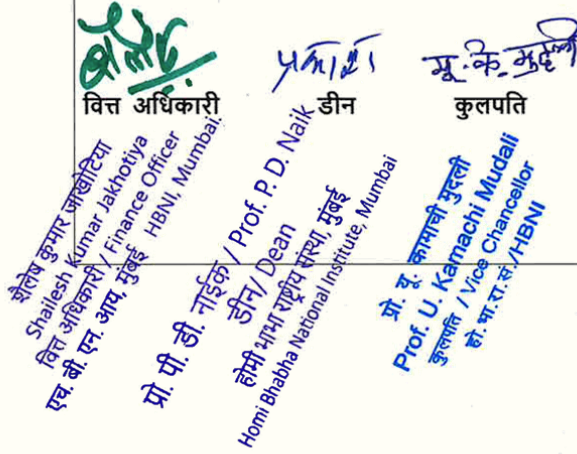 शैलेष
प्रकाश
यू. के. मुदली
वित्त अधिकारी
डीन
कुलपति
शैलेष कुमार जाखोटिया
Shailesh Kumar Jakhotiya
वित्त अधिकारी / Finance Officer
एच. बी. एन. आय, मुंबई HBNI, Mumbai.
प्रो. पी. डी. नाईक / Prof. P. D. Naik
डीन / Dean
होमी भाभा राष्ट्रीय संस्था, मुंबई
Homi Bhabha National Institute, Mumbai
प्रो. यू. कामाची मुदली
Prof. U. Kamachi Mudali
कुलपति / Vice Chancellor
हो. भा. रा. सं. / HBNI